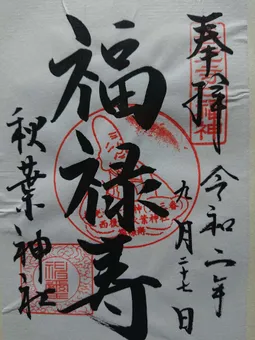 奉拝
令和二年
九月二十七日
福禄寿
秋葉神社